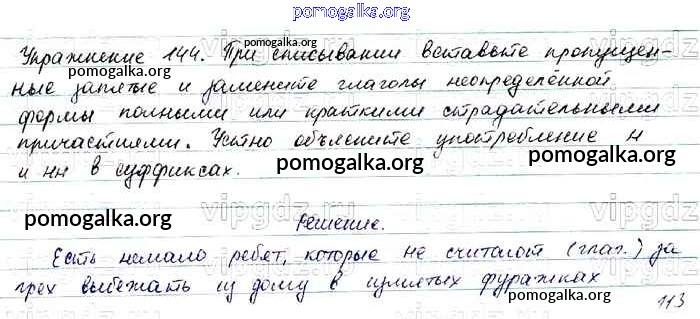 pomogalka.org
Упражнение 144. При списывании вставьте пропущен-
ные запятые и замените глаголы неопределённой
формы полными или краткими страдательными
причастиями. Устно объясните употребление н
и нн в суффиксах.
pomogalka.org pomogalka.org
pomogalka.org pomogalka.org
Решение.
Есть немало ребят, которые не считают (глаг.) за
грех выбежать из дому в измятых фуражках
113
pomogalka.org